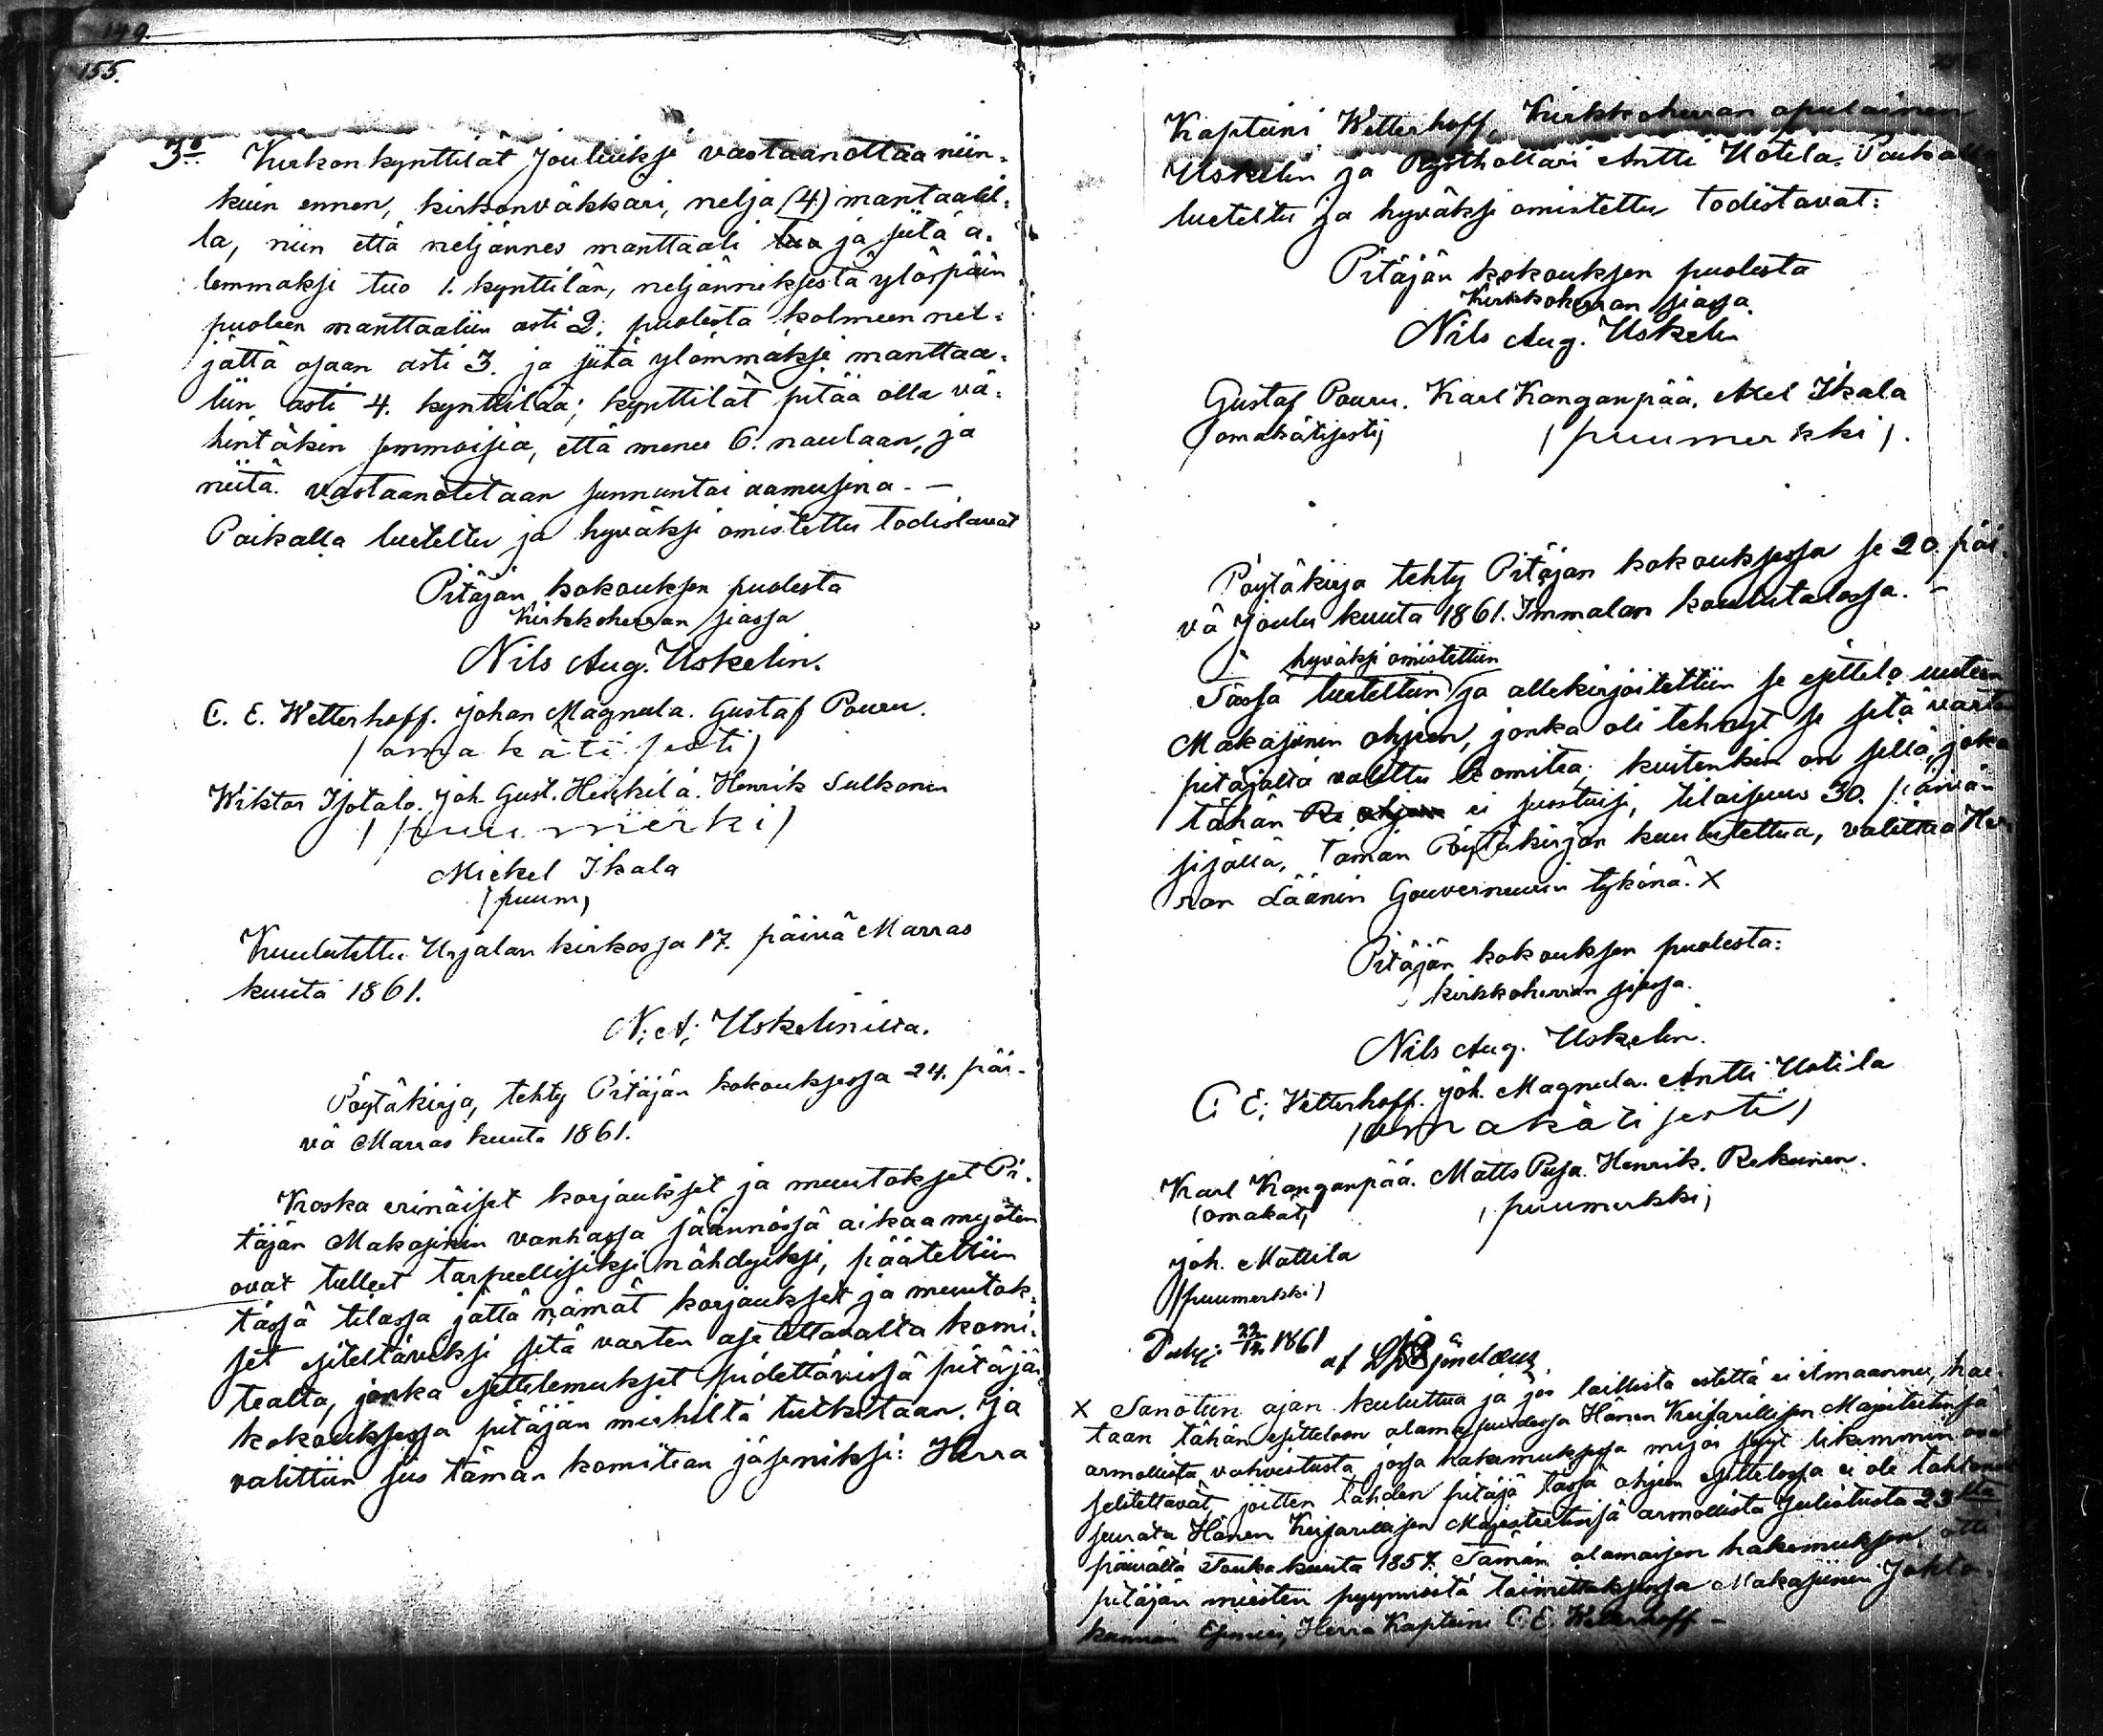 149.
155.
3o. Kirkon kynttilät Jouluksi vastaanottaa niin-
kuin ennen, kirkonväkkäri, nelja (4) mantaalil-
la, niin että neljännes manttaali tuo ja siitä a-
lemmaksi tuo 1. kynttilän, neljänniksestä ylöspäin
puoleen manttaaliin asti 2. puolesta kolmeen nel-
jättä osaan asti 3. ja siitä ylömmäksi manttaa-
liin asti 4. kynttilää; kynttilät pitää olla vä-
hintäkin semmoisia, että menee 6. naulaan, ja
niitä vastaanotetaan sunnuntai aamusina. —
Paikalla lueteltu ja hyväksi omistettu todistavat
Pitäjän kokouksen puolesta
Kirkkoherran siassa
Nils Aug. Uskelin.
C. E. Wetterhoff. Johan Magnula. Gustaf Pouru.
(omakätisesti)
Wiktor Isotalo. Joh. Gust. Heikilä. Henrik Sulkonen
(puumerki)
Mickel Ikala
(puum)
Kuulutettu Urjalan kirkossa 17. päivä Marras
kuuta 1861.
N. A. Uskelinilta.
Pöytäkirja, tehty Pitäjän kokouksessa 24. päi-
vä Marras kuuta 1861.
Koska erinäiset korjaukset ja muutokset Pi-
täjän Makasinin vanhassa säännössä aikaa myöten
ovat tulleet tarpeellisiksi nähdyiksi, päätettiin
tässä tilassa jättä nämät korjaukset ja muutok-
set esiteltäviksi sitä varten asetettavalta komi-
tealta, jonka esittelemukset pidettävissä pitäjän
kokouksessa pitäjän miehiltä tutkitaan. Ja
valittiin siis tämän komitean jäseniksi: Herra
Kapteini Wetterhoff, Kirkkoherran apulainen
Uskelin ja Rysthollari Antti Uotila. Paikalla
lueteltu ja hyväksi omistettu todistavat:
Pitäjän kokouksen puolesta
Kirkkoherran siassa
Nils Aug. Uskelin
Gustaf Pouru. Karl Kanganpää. Axel Ikala
(omakätisesti) (puumerkki).
Pöytäkirja tehty Pitäjän kokouksessa se 20. päi-
vä Joulu kuuta 1861. Immalan koulutalossa. —
hyväksi omistettiin
Tässä lueteltiin ja allekirjoitettiin se esittelo uuteen
Makasiinin ohjeen, jonka oli tehnyt se sitä varten
pitäjältä valittu komitea; kuitenkin on sillä, joka
tähän ei suostuisi, tilaisuus 30. päivän
sisällä, tämän Pöytäkirjan kuulutettua, valittaa Her-
ran Läänin Gouverneurin tykönä. X
Pitäjän kokouksen puolesta:
kirkkoherran siassa.
Nils Aug. Uskelin.
C. E. Wetterhoff. Joh. Magnula. Antti Uotila
(omakätisesti)
Karl Kanganpää. Matts Pusa. Henrik. Rekunen.
(omakät) (puumerkki)
Joh. Mattila
(puumerkki)
22/12 1861
af
X Sanotun ajan kuluttua ja jos laillista estettä ei ilmaannu, hae-
taan tähän esitteloon alamaisuudessa Hänen Keisarillisen Majesteetinsä
armollista vahvistusta, jossa hakemuksessa myös syyt likemmin ovat
selitettävät, joitten tähden pitäjä tässä ohjeen esittelossa ei ole tahtonut
seurata Hänen Keisarillisen Majesteetinsä armollista Julistusta 23lta
päivältä Touko kuuta 1857. Tämän alamaisen hakemuksen otti
pitäjän miesten pyynnöstä toimittaaksensa Makasiinin Johto-
kunnan Esimies, Herra Kapteini C. E. Wetterhoff —